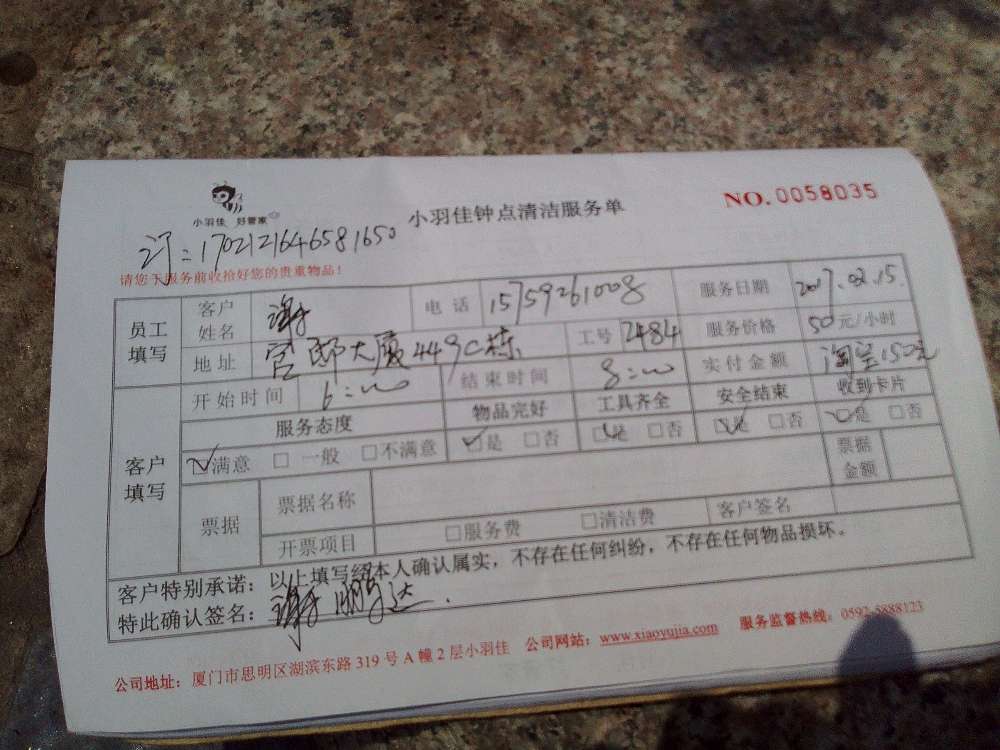 小羽佳 好管家
小羽佳钟点清洁服务单
NO.0058035
订:1702121646581650
请您于服务前收拾好您的贵重物品!
员工填写 客户姓名 谢 电话 15759261008 服务日期 2017.02.15.
地址 官邸大厦449C栋 工号 2484 服务价格 50元/小时
开始时间 6:00 结束时间 8:00 实付金额 淘宝150元
客户填写 服务态度 物品完好 工具齐全 安全结束 收到卡片
☑满意 □一般 □不满意 ☑是 □否 ☑是 □否 ☑是 □否 ☑是 □否
票据 票据名称 票据金额
开票项目 □服务费 □清洁费 客户签名
客户特别承诺:以上填写经本人确认属实,不存在任何纠纷,不存在任何物品损坏。
特此确认签名:谢鹏达.
公司地址:厦门市思明区湖滨东路319号A幢2层小羽佳 公司网站:www.xiaoyujia.com 服务监督热线:0592-5888123